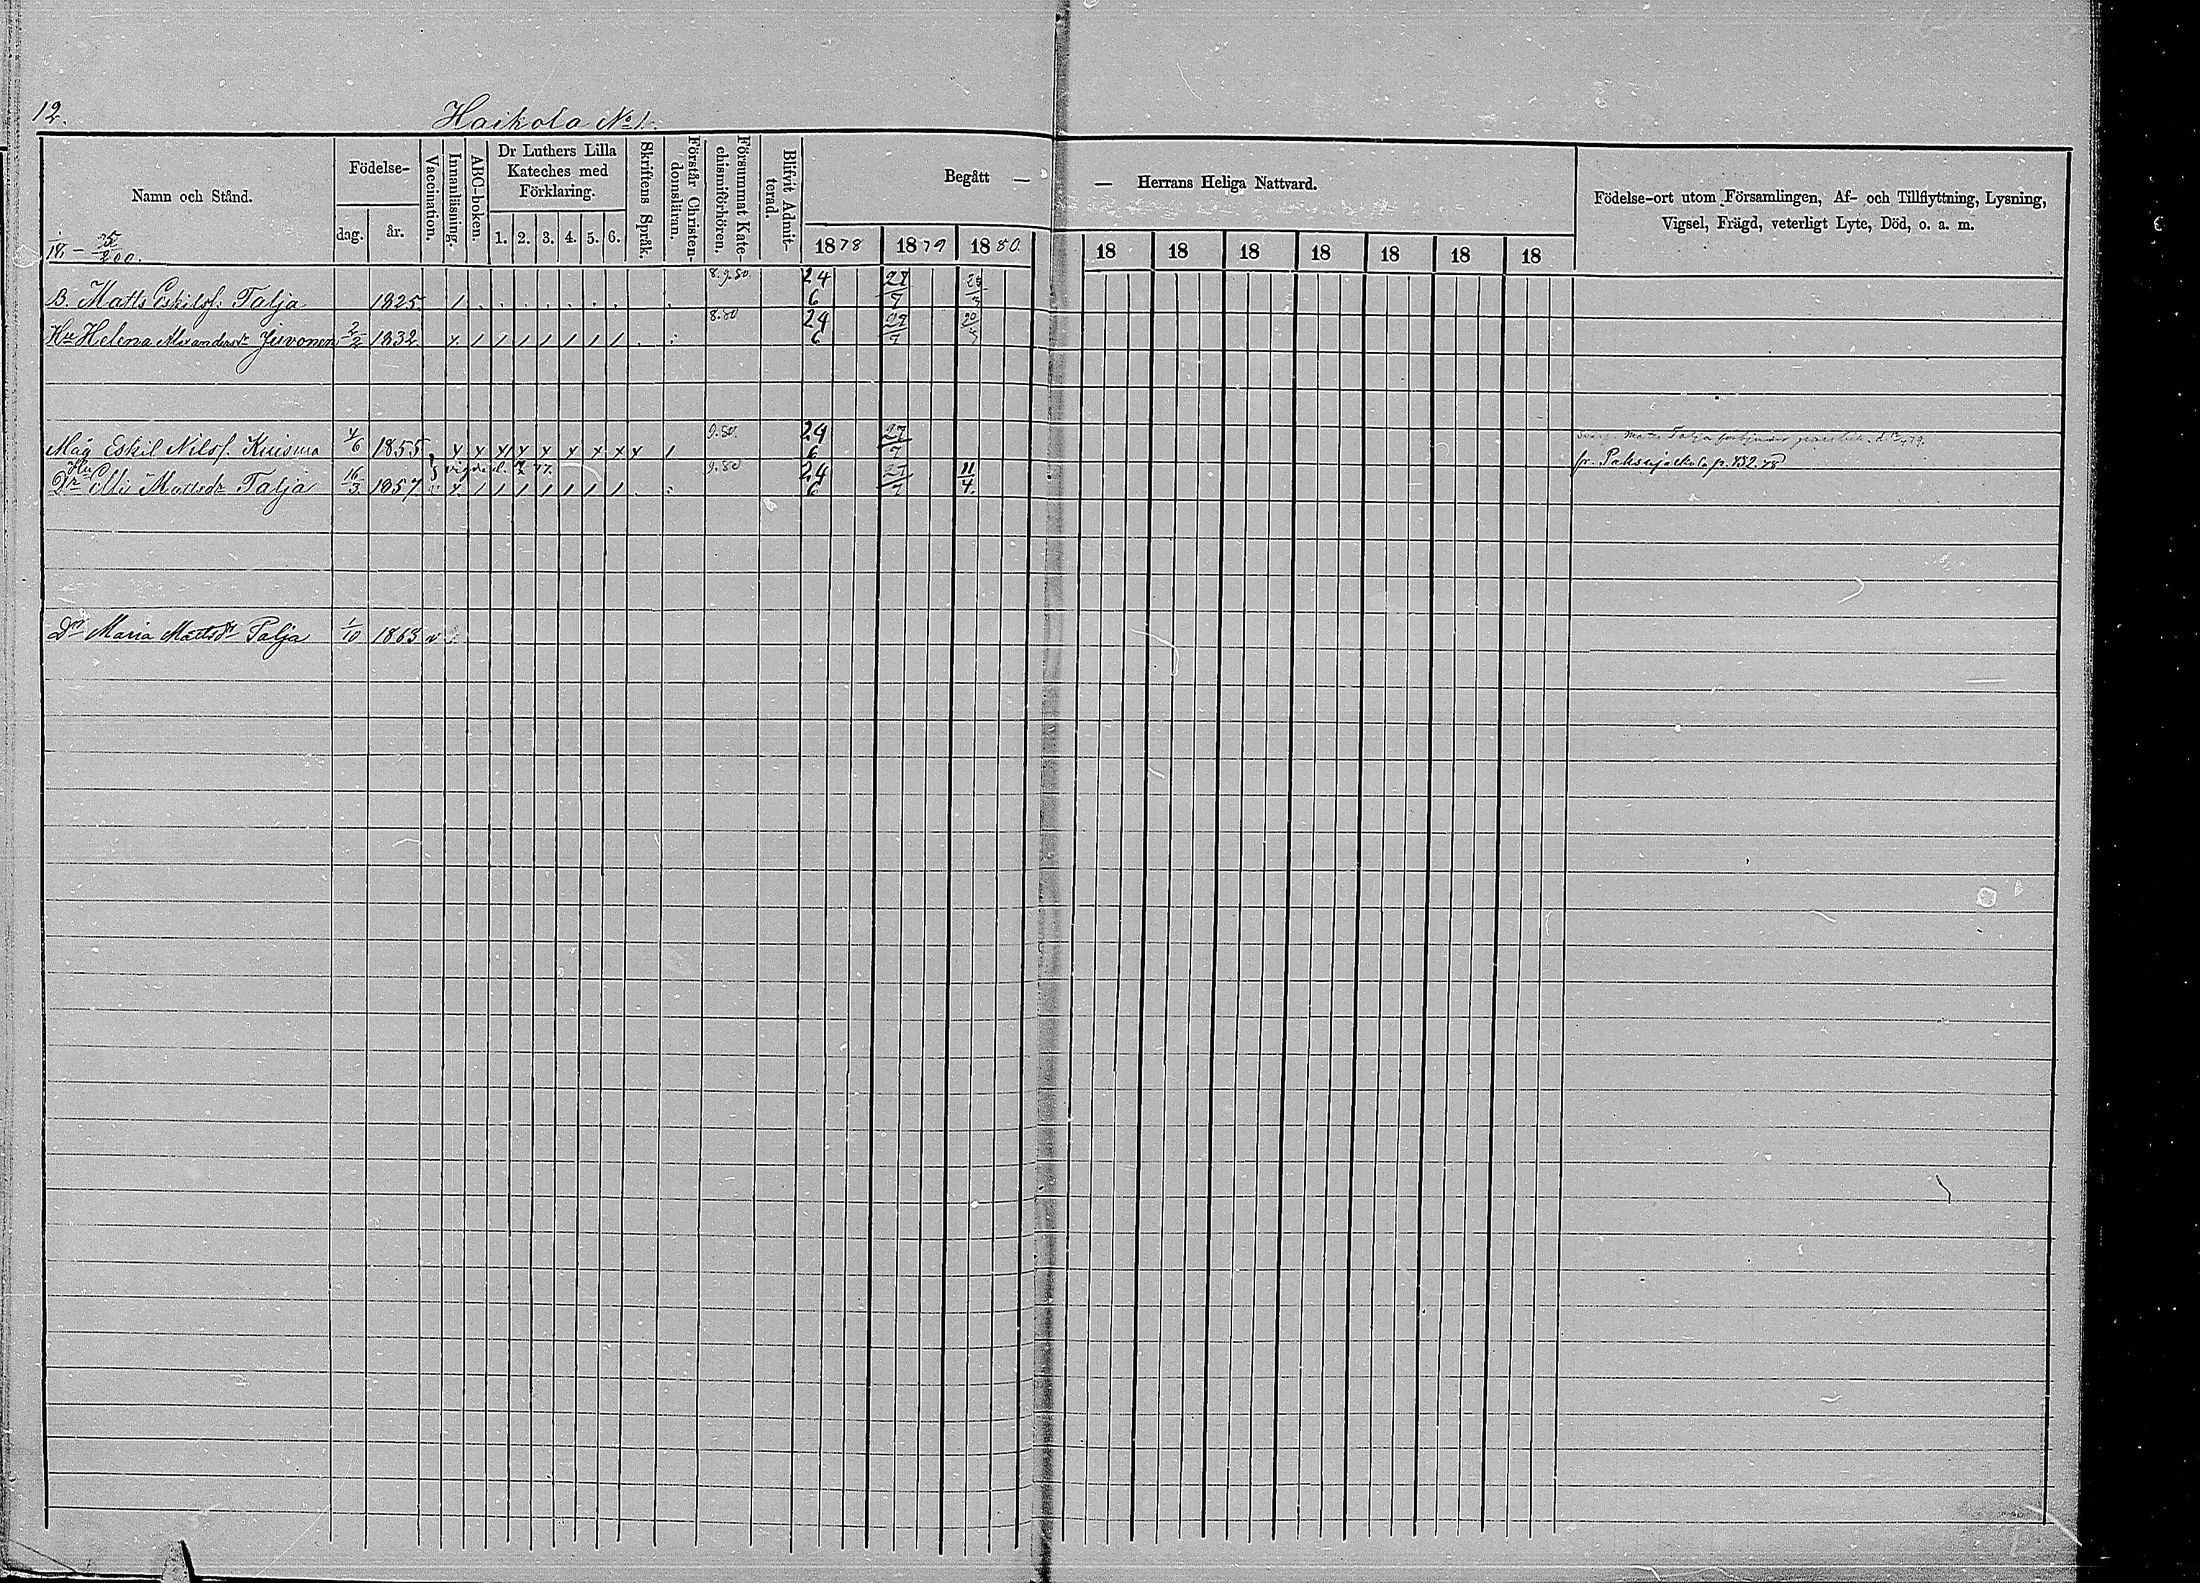 12.
Haikola No 1.
Namn och Stånd.
Födelse-
dag.
år.
Vaccination.
Innanläsning.
ABC-boken.
Dr Luthers Lilla Kateches med Förklaring.
1. 2. 3. 4. 5. 6.
Skriftens Språk.
Förstår Christendomsläran.
Försummat Katechismiförhören.
Blifvit Admitterad.
Begått —
— Herrans Heliga Nattvard.
1878 1879 1880.
18 18 18 18 18 18 18
Födelse-ort utom Församlingen, Af- och Tillflyttning, Lysning,
Vigsel, Frägd, veterligt Lyte, Död, o. a. m.
B. Matts Eskilss. Talja 1825. 8.9.80 24/6
Hu Helena Alexandersdr Jeivonen 2/2 1832 8.80 24/6
Måg Eskil Nilss. Kuisma 4/6 1855 9.80. 24/6 27/7
fr. Paksujackola p. 452. 78
Hu
Dr Elli Mattsdr Talja 16/3 1857 9.80 24/6 27/7 11/4.
Dr Maria Mattsdr Talja 1/10 1863 v